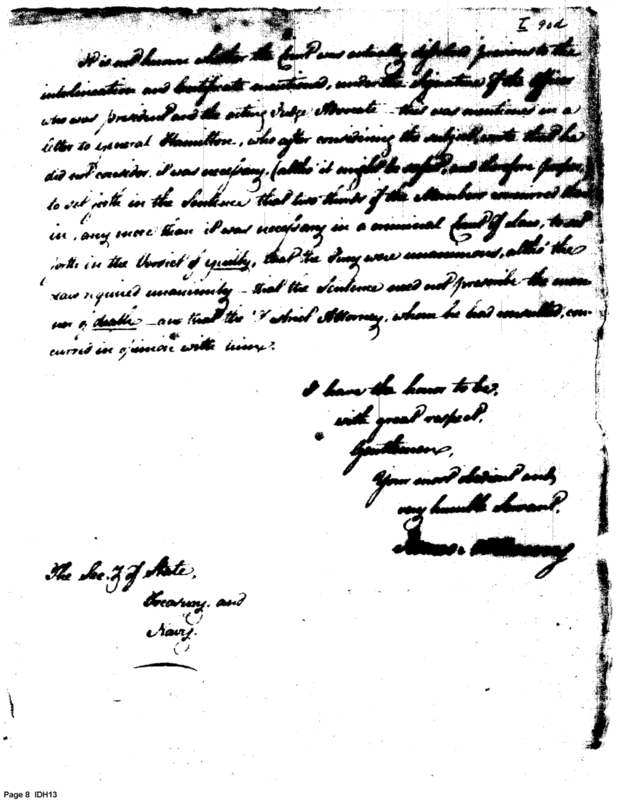 I 90d
It is not known whether the Court was actually dissolved previous to the
interlineation and Certificate mentioned, under the signature of the officer
who was president and the acting Judge Advocate – this was mentioned in a
letter to general Hamilton, who after considering the subject, wrote that he
did not consider it was necessary, (altho' it might be safest, and therefore prefer,
to set forth in the Sentence that two thirds of the Members concurred there
in, any more than it was necessary in a criminal Court of Law, to set
forth in the Verdict of guilty, that the Jury were unanimous, altho' the
Law required unanimity – that the Sentence need not prescribe the man
ner of death – and that the District Attorney, whom he had consulted, con
curred in opinion with him.
I have the honor to be,
with great respect,
Gentlemen,
Your most obedient and
very humble Servant,
James McHenry
The Sec.y of State,
Treasury and
Navy.
Page 8 IDH13